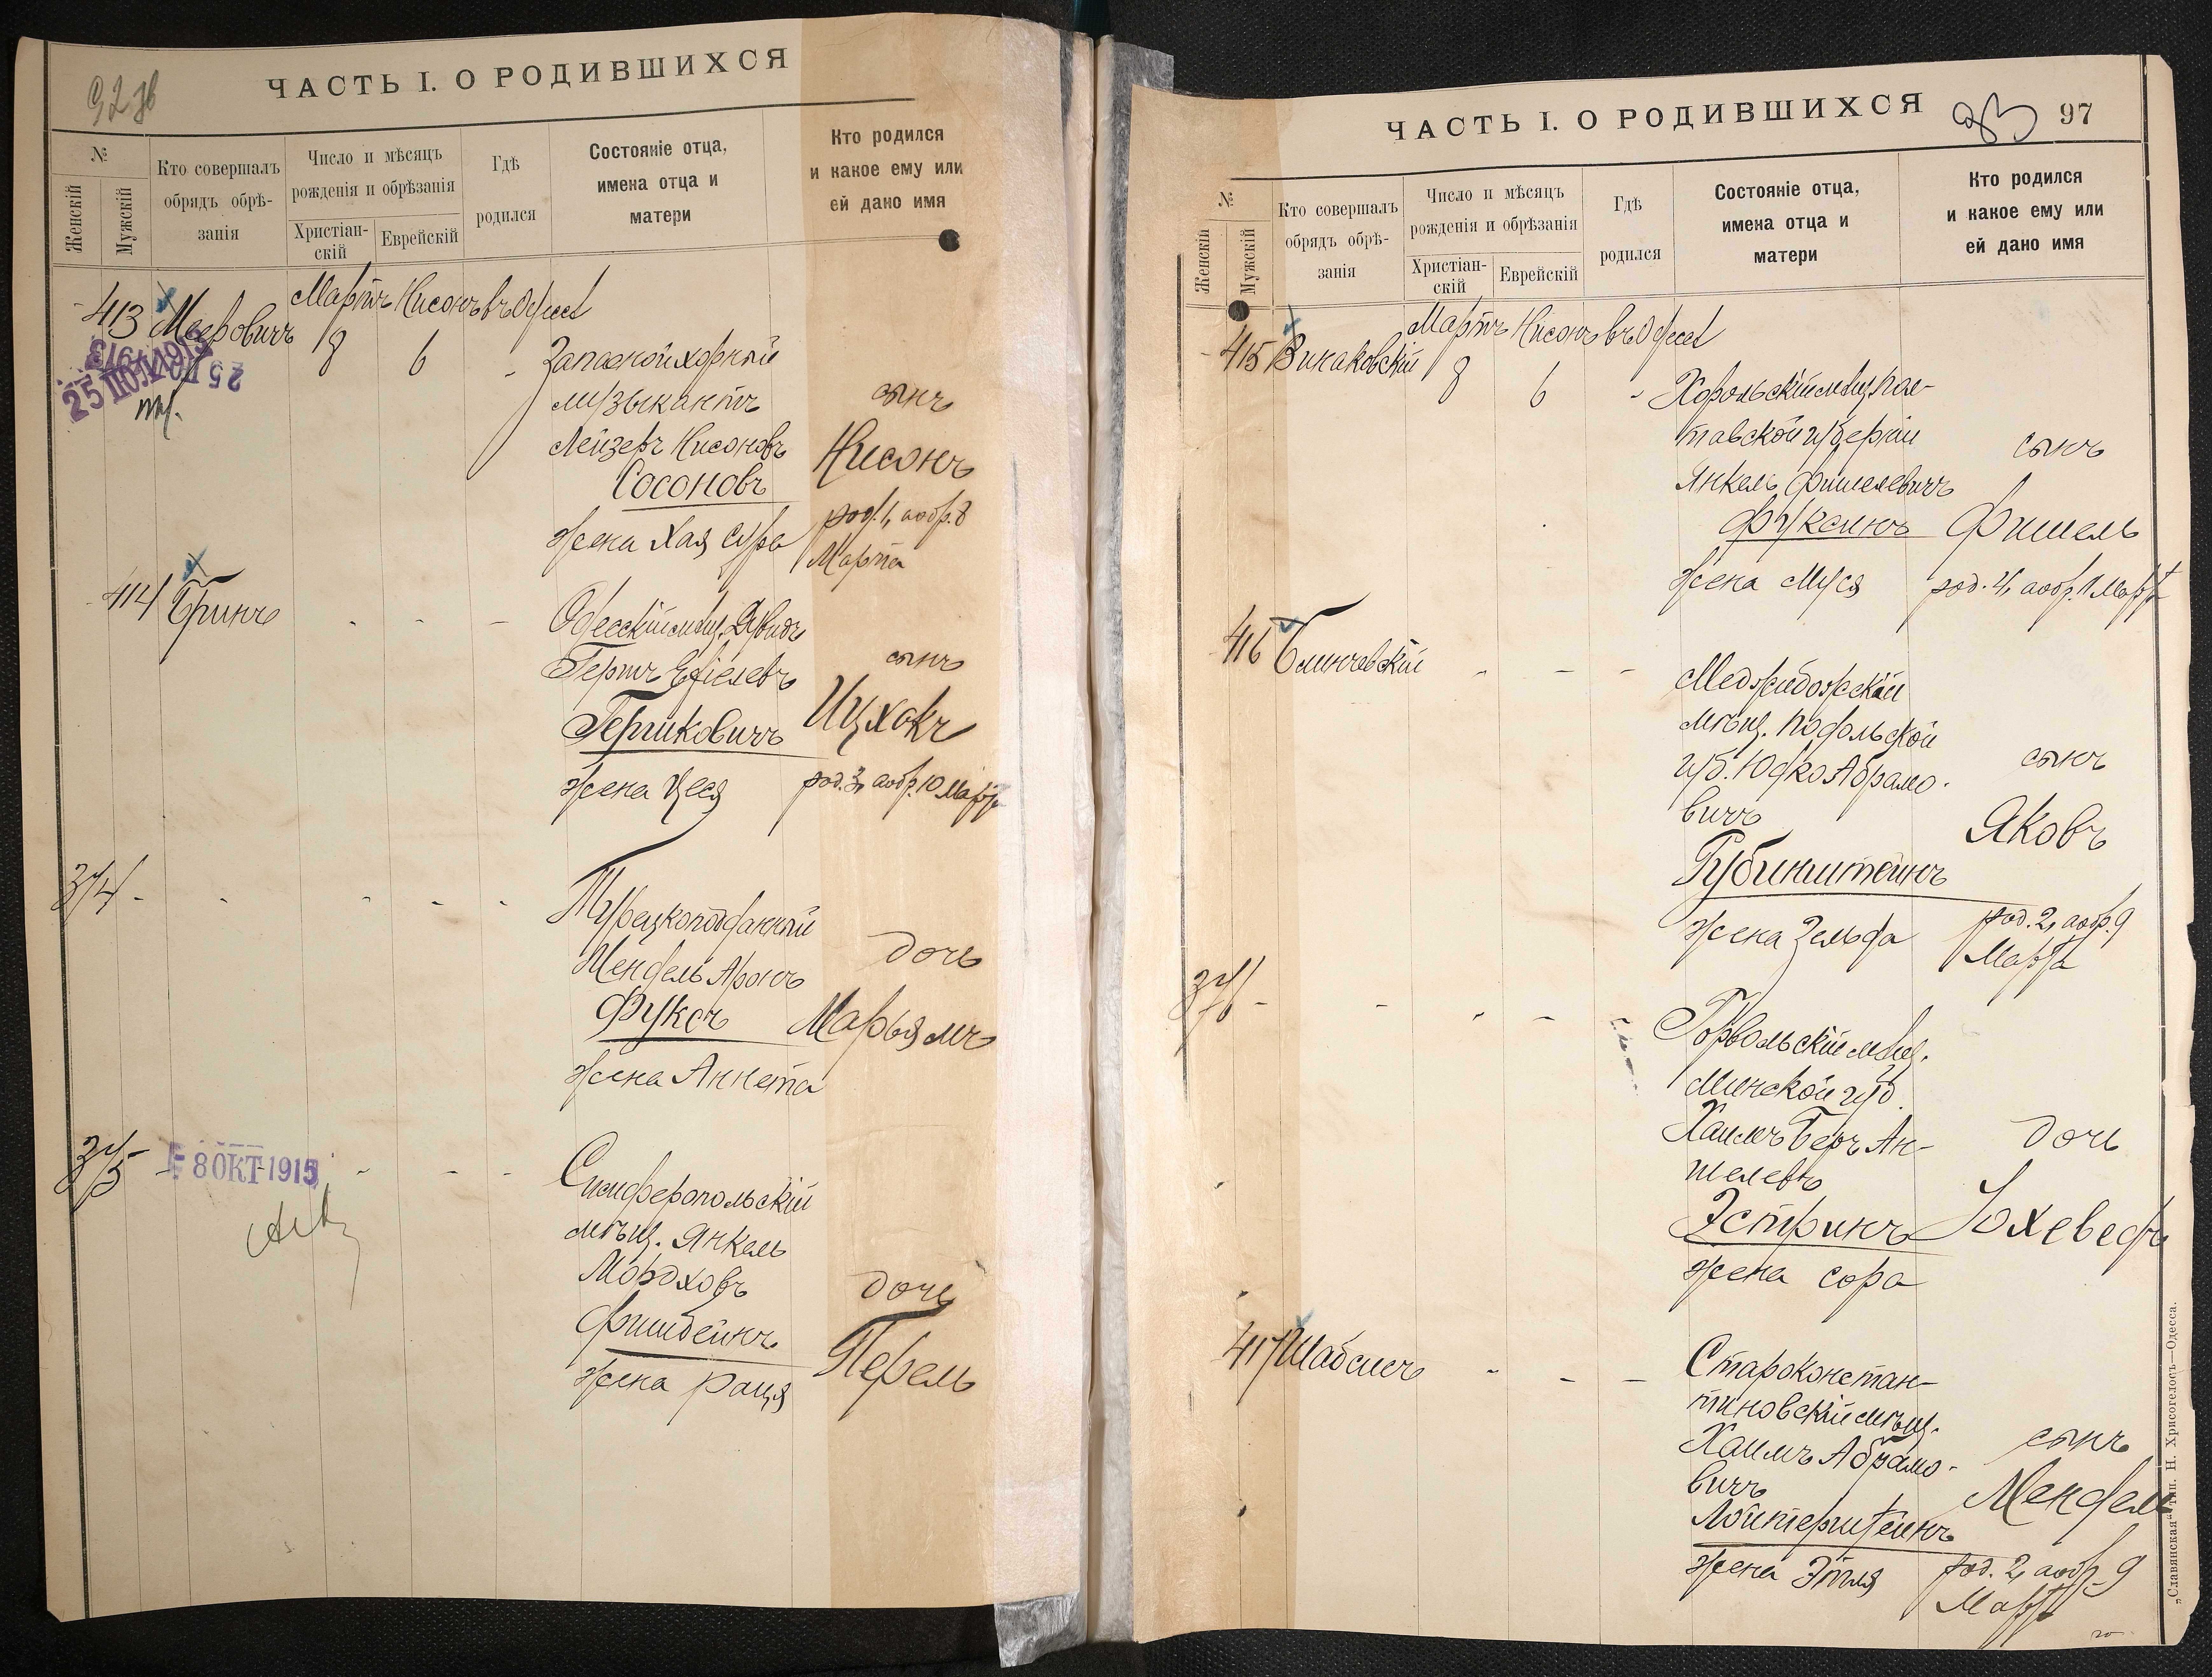 92 зв
ЧАСТЬ I. О РОДИВШИХСЯ
№
Женскій
Мужскій
Кто совершалъ
обрядъ обрѣ-
занія
Число и мѣсяцъ
рожденія и обрѣзанія
Христіан-
скій
Еврейскій
Гдѣ
родился
Состояніе отца,
имена отца и
матери
Кто родился
и какое ему или
ей дано имя
Мартъ Нисонъ въ Одессѣ
413 Мееровичъ 8 6 -
25 ІЮЛ 1913
Запасной хорный
музыкантъ
Лейзеръ Нисоновъ
Сосоновъ
жена Хая Сура
сынъ
Нисонъ
род. 1, а обр. 8
Марта
414 Гринъ - - -
Одесскій мѣщ. Давидъ
Гершъ Ехіелевъ
Гершковичъ
жена Цеся
сынъ
Ицхокъ
род. 3, а обр. 10 Марта
374 - - - - -
Турецкоподданный
Мендель Аронъ
Фуксъ
жена Аннета
дочь
Марьямъ
375 - - - -
8 ОКТ 1915
Симферопольскій
мѣщ. Янкель
Мордховъ
Фишбейнъ
жена Рация
дочь
Перель
ЧАСТЬ I. О РОДИВШИХСЯ
97
№
Женскій
Мужскій
Кто совершалъ
обрядъ обрѣ-
занія
Число и мѣсяцъ
рожденія и обрѣзанія
Христіан-
скій
Еврейскій
Гдѣ
родился
Состояніе отца,
имена отца и
матери
Кто родился
и какое ему или
ей дано имя
Мартъ Нисонъ въ Одессѣ
415 Винаковскій 8 6 -
Хорольскій мѣщ. Пол-
тавской губерніи
Янкель Фишелевичъ
Фуксинъ
жена Муся
сынъ
Фишель
род. 4, а обр. 11 Марта
416 Блинчевскій - - -
Меджибожскій
мѣщ. Подольской
губ. Юдко Абрамо-
вичъ
Рубинштейнъ
жена Зельда
сынъ
Яковъ
род. 2, а обр. 9
Марта
376 - - - -
Горвольскій мѣщ.
Минской губ.
Хаимъ Беръ Ан-
шелевъ
Эстринъ
жена Сора
дочь
Іохеведъ
417 Шабсисъ - - -
Староконстан-
тиновскій мѣщ.
Хаимъ Абрамо-
вичъ
Лойтерштейнъ
жена Этля
сынъ
Мендель
род. 2, а обр. 9
Марта
„Славянская“ тип. Н. Хрисогелосъ—Одесса.